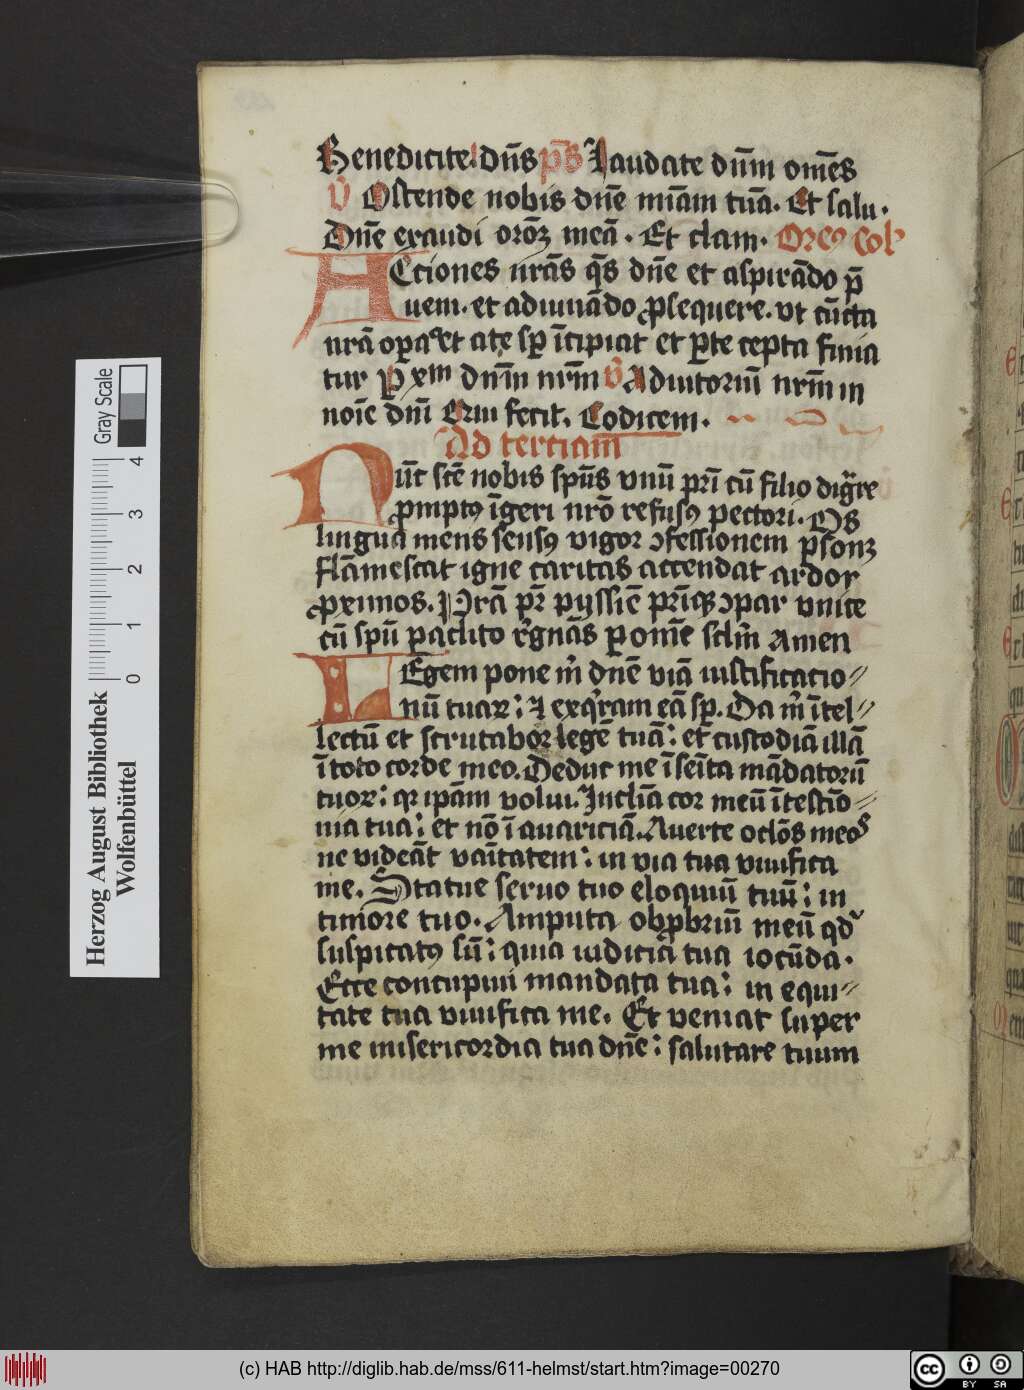 Benedicite. dn̄s ps̄ Laudate dn̄m om̄es
V̄ Ostende nobis dn̄e miam̄ tuā. Et salu.
Dn̄e exaudi orōꝫ meā. Et clam.
Acciones nr̄as q̄s dn̄e et aspirādo p̄
ueni. et adiuuādo ꝓsequere. vt cūcta
nrā oꝑa et a te sꝑ īcipiat et ꝑ te cepta finia
tur ꝑ xp̄m dn̄m nr̄m V̄ Adiutoriū nr̄m in
noīe dn̄i Qui fecit.
Ad terciam
Nūc sc̄e nobis spūs vnū pr̄i cū filio digr̄e
ꝓmptꝰ īgeri nr̄o refusꝰ pectori. Os
lingua mens sensꝰ vigor ꝯfessionem ꝑsonꝫ
flāmescat igne caritas accendat ardor
ꝓximos. Pr̄a pr̄ pijssīe pr̄iqꝫ ꝯpar vnice
cū spū paclito r̄gnās ꝑ om̄e sclm̄ Amen
Legem pone m̄ dn̄e viā iustificatio⸗
nū tuaꝝ: ⁊ exq̄ram eā sꝑ. Da m̄ ītel⸗
lectū et scrutabor legē tuā: et custodiā illā
ī toto corde meo. Deduc me ī seīta mādatorū
tuoꝝ: qꝛ ipām volui. Inclīa cor meū ī testīo⸗
nia tua: et nō ī auariciā. Auerte oclōs meos
ne videāt vaītatem: in via tua viuifica
me. Statue seruo tuo eloquiū tuū: in
timore tuo. Amputa obꝓbriū meū qd̄
suspicatꝰ sū: quia iudicia tua iocūda.
Ecce concupiui mandata tua: in equi⸗
tate tua viuifica me. Et veniat super
me misericordia tua dn̄e: salutare tuum
Herzog August Bibliothek
Wolfenbüttel
Gray Scale
0 1 2 3 4
(c) HAB http://diglib.hab.de/mss/611-helmst/start.htm?image=00270
cc BY SA